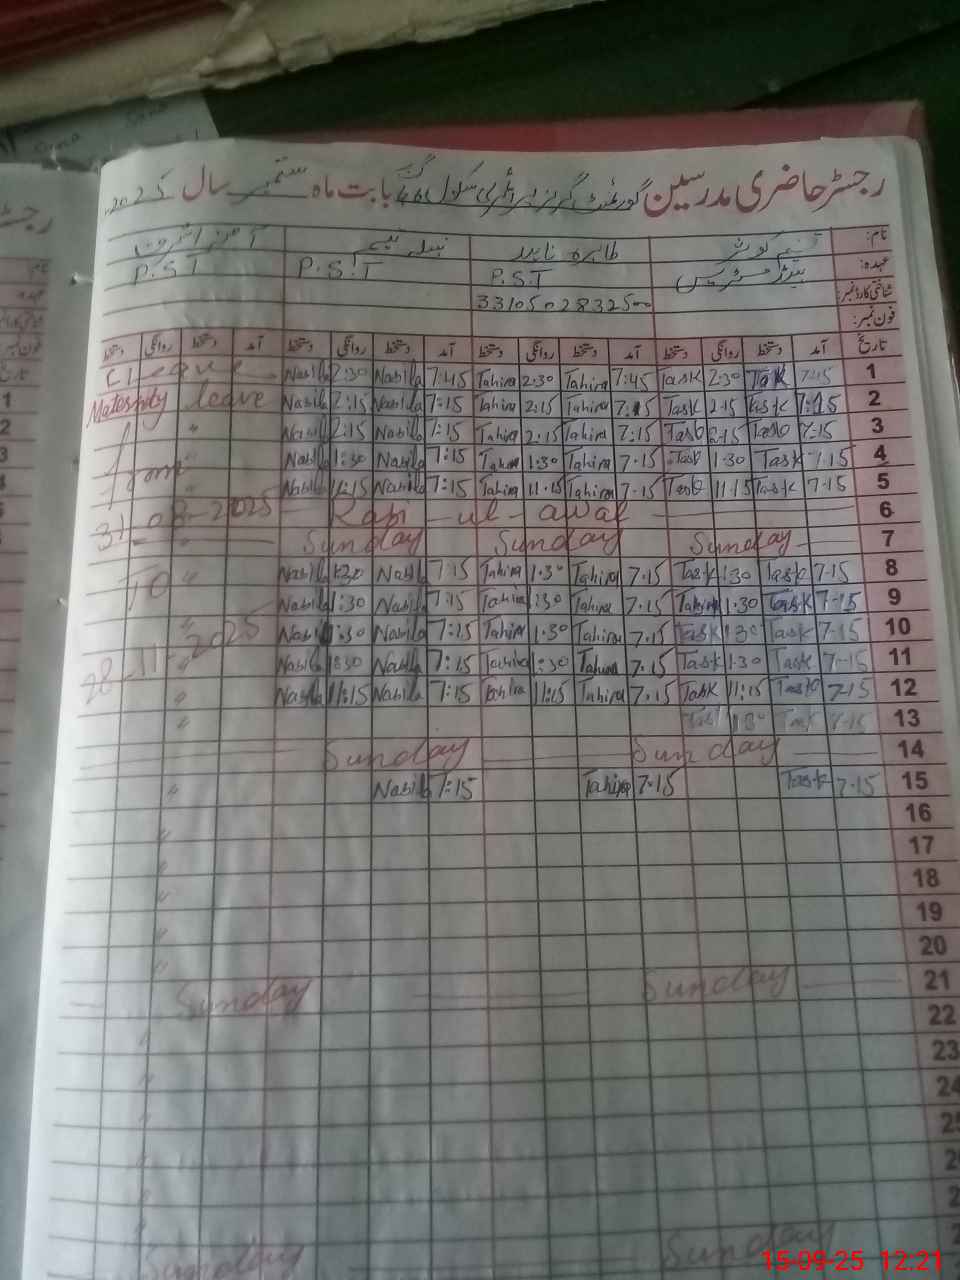 رجسٹر حاضری مدرسین گورنمنٹ گرلز پرائمری سکول بابت ماہ ستمبر سال 2025
نام: تسنیم کوثر طاہرہ ناہید نبیلہ
عہدہ: ہیڈ مسٹریس P.S.T P.S.T P.S.T
شناختی کارڈ نمبر:
فون نمبر:
تاریخ آمد دستخط روانگی دستخط آمد دستخط روانگی دستخط آمد دستخط روانگی دستخط آمد دستخط روانگی دستخط
Leave Nabila 2:30 Nabila 7:45 Tahira 2:30 Tahira 7:45 Task 2:30 Task 7-15 1
Maternity leave Nabila 2:15 Nabila 7:15 Tahira 2:15 Tahira 7:15 Task 2-15 Task 7:15 2
" Nabila 2:15 Nabila 7:15 Tahira 2:15 Tahira 7:15 2-15 7-15 3
from Nabila 1:30 Nabila 7:15 Tahira 1:30 Tahira 7.15 Task 1-30 Task 7-15 4
Nabila 11:15 Nabila 7:15 Tahira 11.15 Tahira 7.15 11-15 Task 7-15 5
31-08-2025 Rabi-ul-awal 6
" Sunday Sunday Sunday 7
To " Nabila 1:30 Nabila 7:15 Tahira 1.30 Tahira 7.15 Task 1:30 Task 7-15 8
Nabila 1:30 Nabila 7:15 Tahira 1:30 Tahira 7.15 1.30 Task 7-15 9
" Nabila 1:30 Nabila 7:15 Tahira 1.30 Tahira 7.15 Task 1.30 Task 7-15 10
28-11-2025 " Nabila 1:30 Nabila 7:15 Tahira 1:30 Tahira 7.15 Task 1.30 Task 7-15 11
" Nabila 11:15 Nabila 7:15 Tahira 11:15 Tahira 7.15 Task 11:15 7-15 12
" 1:30 Task 7-15 13
Sunday Sunday 14
" Nabila 7:15 Tahira 7.15 Task 7-15 15
16
" 17
" 18
" 19
" 20
Sunday Sunday 21
" 22
23
" 24
"
"
"
Sunday Sunday
15-09-25 12:21